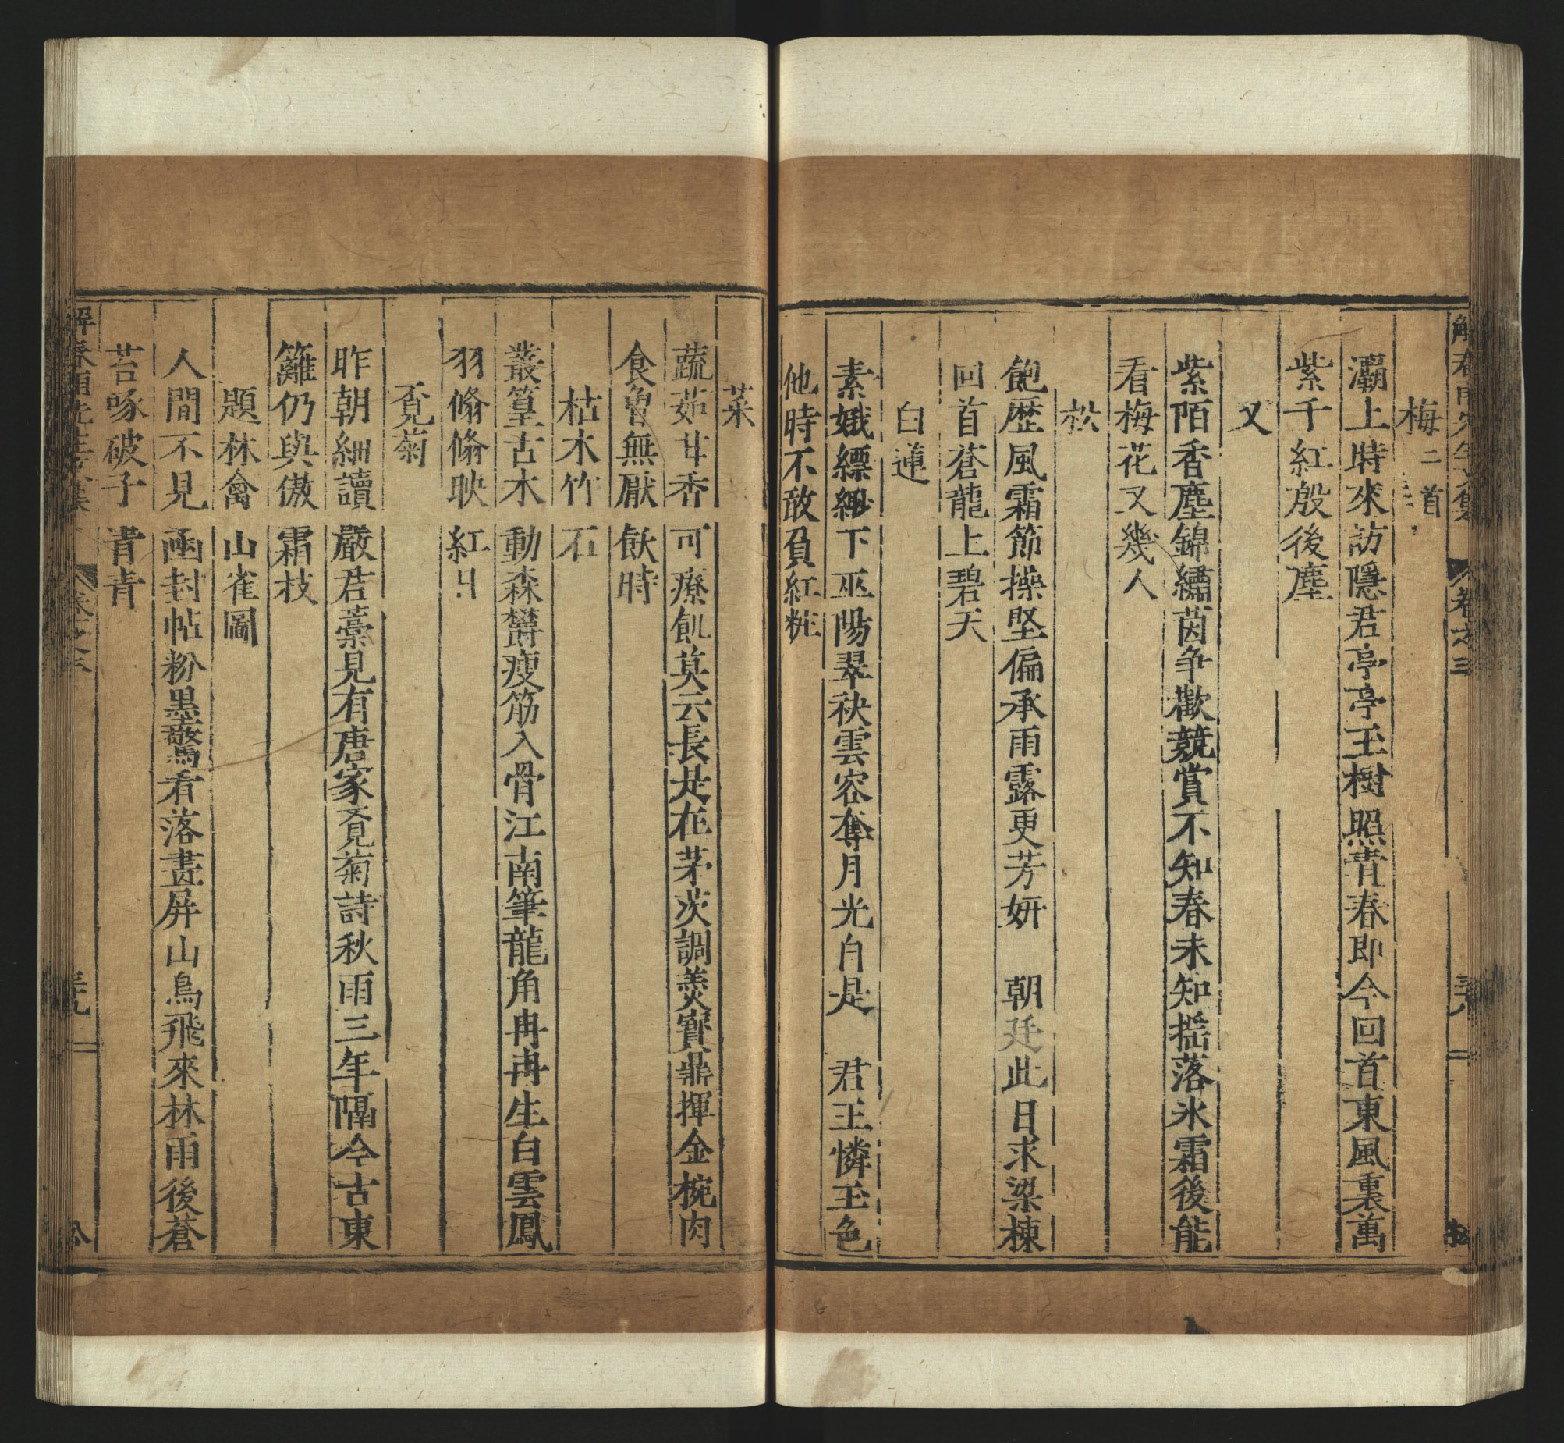 梅二首
灞上時來訪隱君亭亭玉樹照青春即今回首東風裏萬
紫千紅殷後塵
又
紫陌香塵錦繡茵爭歡競賞不知春未知揺落氷霜後能
看梅花又幾人
松
飽歷風霜節操堅偏承雨露更芳妍　朝廷此日求梁棟
回首蒼龍上碧天
白蓮
素娥縹緲下巫陽翠袂雲容奪月光自是　君王憐玉色
他時不敢負紅粧
菜
蔬茹甘香可療飢莫云長是在茅茨調羹寳鼎揮金椀肉
食曾無厭飫時
枯木竹石
叢篁古木動森欝瘦筋入骨江南筆龍角冉冉生白雲鳳
羽翛翛映紅日
覓菊
昨朝細讀嚴君藁見有唐家覓菊詩秋雨三年隔今古東
籬仍與傲霜枝
題林禽山雀圖
人間不見函封帖粉墨驚看落畫屏山鳥飛來林雨後蒼
苔啄破子青青